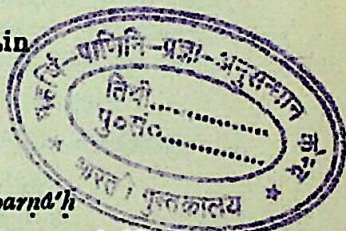 in
महर्षि-पाणिनि-प्रज्ञा-अनुसन्धान
तिथी...............
पु०सं०...............
भारती पुस्तकालय
parṇā'ḥ